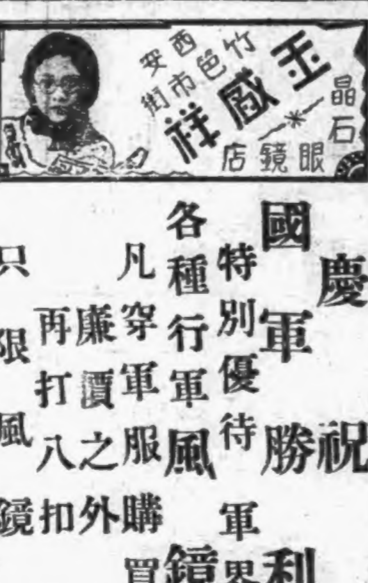 玉盛祥
晶石眼鏡店
西安
竹笆市街
慶祝
國軍勝利
特別優待軍界
各種行軍風鏡
凡穿軍服購買
廉價之外
再打八扣
只限風鏡